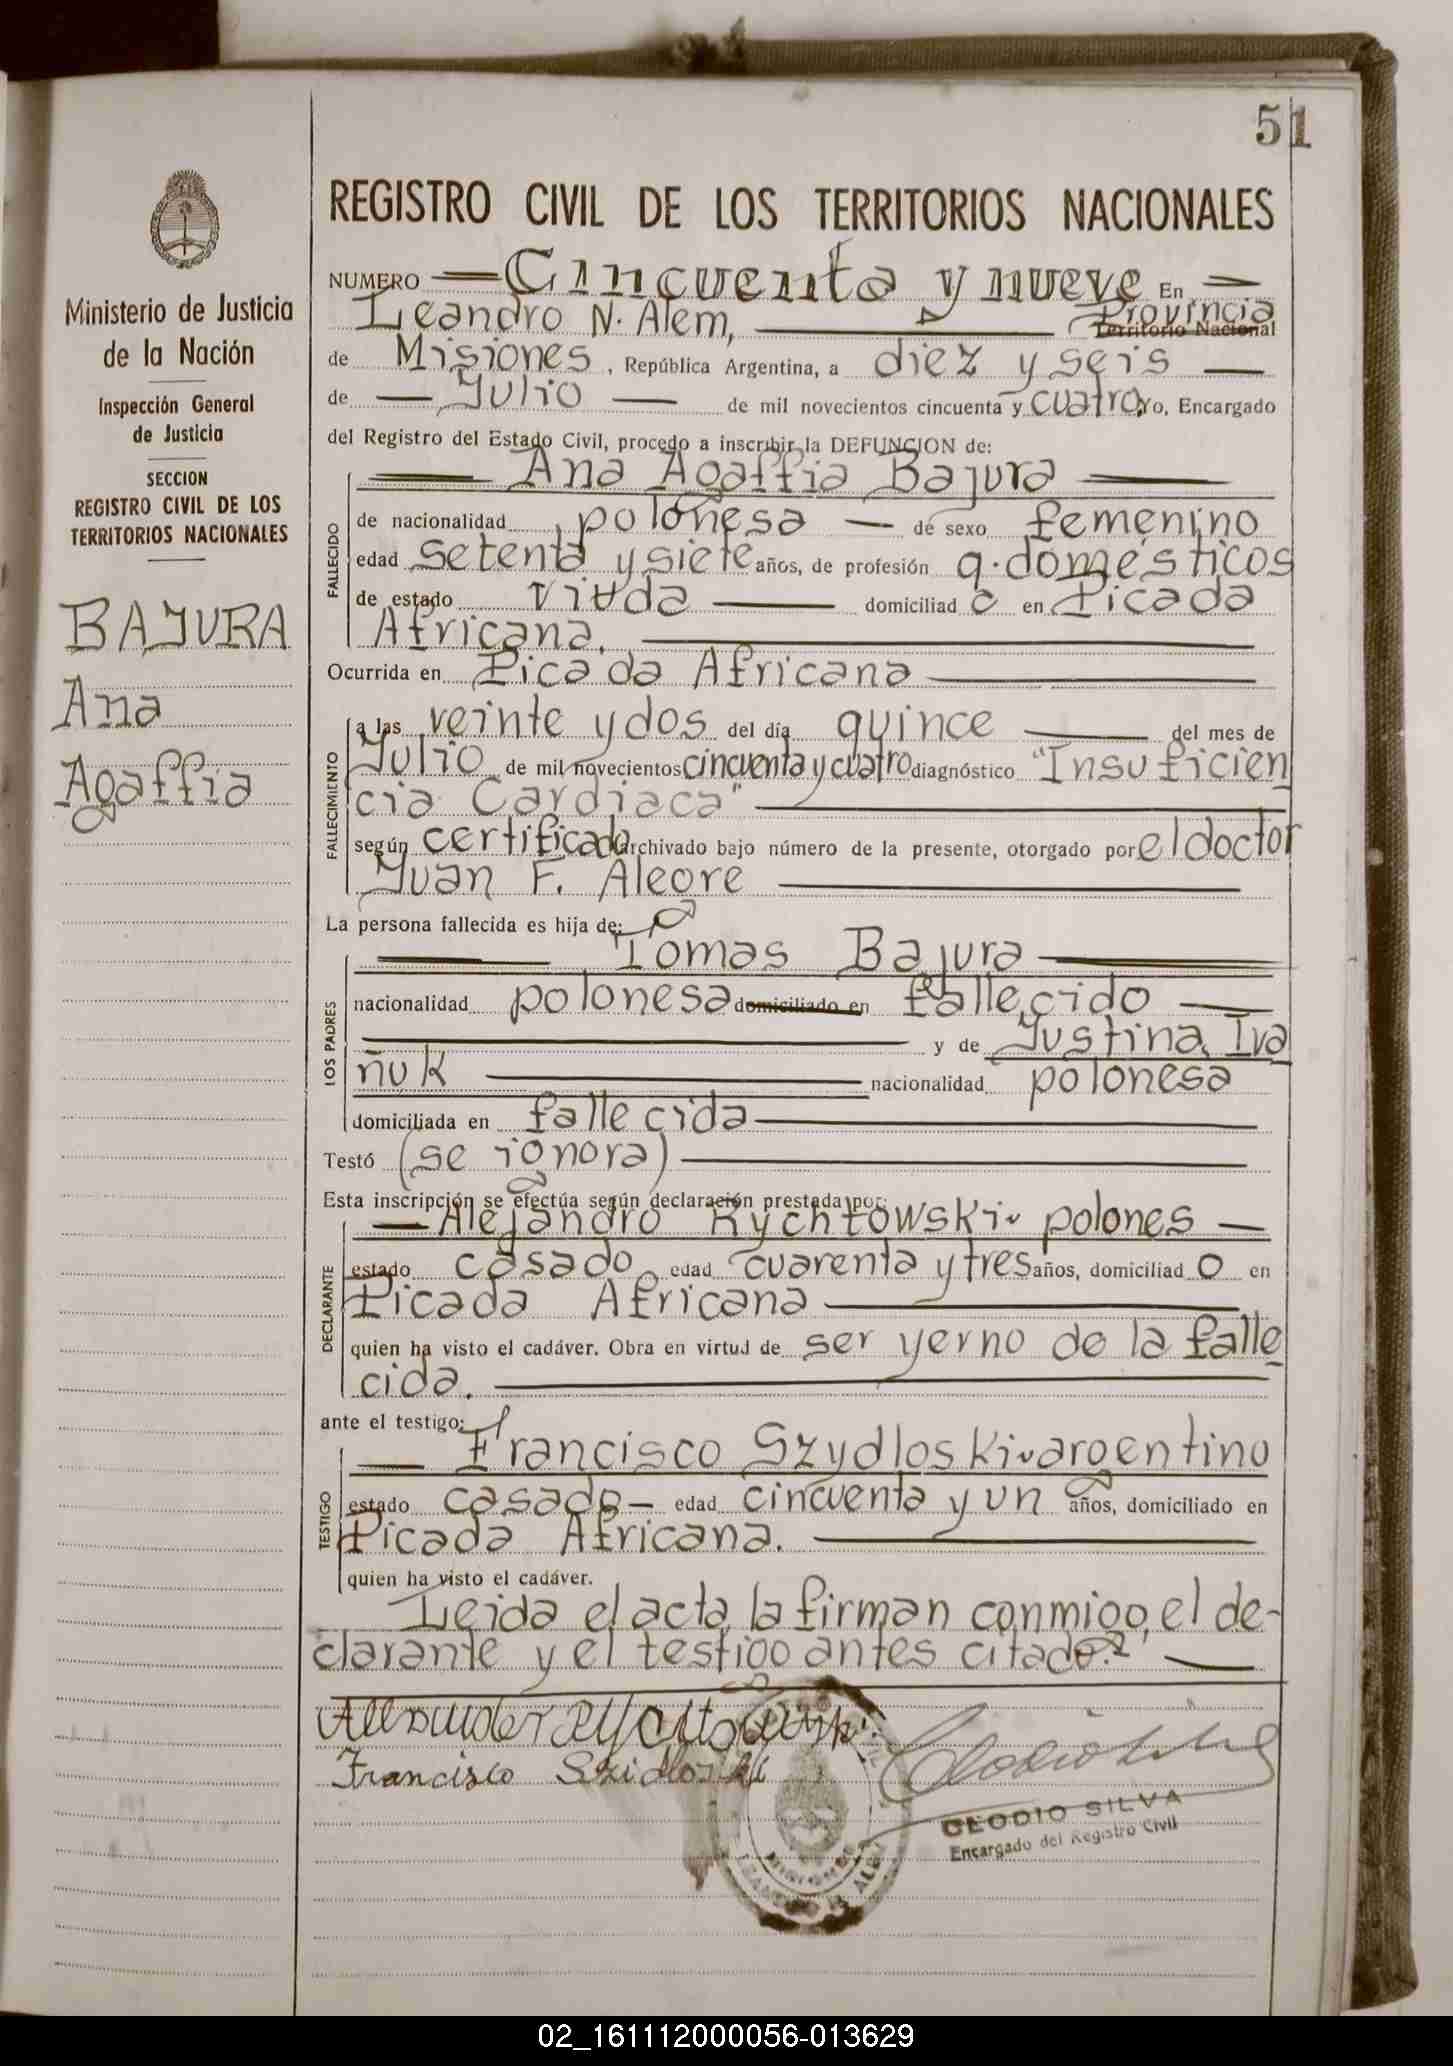 51
Ministerio de Justicia
de la Nación
Inspección General
de Justicia
SECCION
REGISTRO CIVIL DE LOS
TERRITORIOS NACIONALES
BAJURA
Ana
Agaffia
REGISTRO CIVIL DE LOS TERRITORIOS NACIONALES
NUMERO Cincuenta y nueve En
Leandro N. Alem, Provincia Territorio Nacional
de Misiones, República Argentina, a diez y seis
de Julio de mil novecientos cincuenta y cuatro, Yo, Encargado
del Registro del Estado Civil, procedo a inscribir la DEFUNCION de:
Ana Agaffia Bajura
FALLECIDO
de nacionalidad polonesa de sexo femenino
edad setenta y siete años, de profesión q. domésticos
de estado viuda domiciliad a en Picada
Africana.
Ocurrida en Picada Africana
FALLECIMIENTO
a las veinte y dos del día quince del mes de
Julio de mil novecientos cincuenta y cuatro diagnóstico "Insuficien
cia Cardiaca"
según certificado archivado bajo número de la presente, otorgado por el doctor
Juan F. Alegre
La persona fallecida es hija de:
LOS PADRES
Tomas Bajura
nacionalidad polonesa domiciliado en fallecido
y de Justina Iva
ñuk nacionalidad polonesa
domiciliada en fallecida
Testó (se ignora)
Esta inscripción se efectúa según declaración prestada por:
DECLARANTE
Alejandro Rychtowski polones
estado casado edad cuarenta y tres años, domiciliad o en
Picada Africana
quien ha visto el cadáver. Obra en virtud de ser yerno de la falle
cida.
ante el testigo:
TESTIGO
Francisco Szydloski argentino
estado casado edad cincuenta y un años, domiciliado en
Picada Africana.
quien ha visto el cadáver.
Leida el acta, la firman conmigo, el de-
clarante y el testigo antes citado.
Francisco Szidloski
CLODIO SILVA
Encargado del Registro Civil
02_161112000056-013629